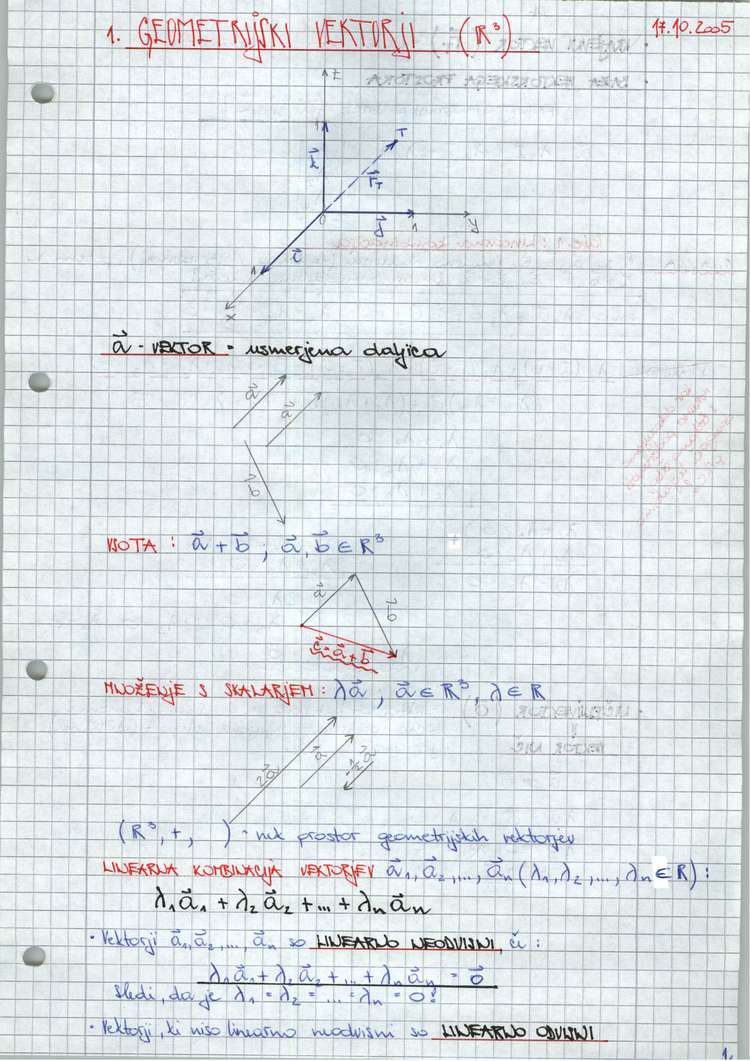 1. GEOMETRIJSKI VEKTORJI (R³) 17.10.2005
z
1
k⃗
T
r⃗_T
0
j⃗
1
y
i⃗
1
x
a⃗ - VEKTOR - usmerjena daljica
a⃗
a⃗
b⃗
VSOTA : a⃗ + b⃗ ; a⃗, b⃗ ∈ R³
a⃗
b⃗
c⃗ = a⃗ + b⃗
MNOŽENJE S SKALARJEM : λa⃗ , a⃗ ∈ R³, λ ∈ R
2a⃗
a⃗
(R³, +, ) - prostor geometrijskih vektorjev
LINEARNA KOMBINACIJA VEKTORJEV a⃗₁, a⃗₂, ..., a⃗ₙ (λ₁, λ₂, ..., λₙ ∈ R) :
λ₁a⃗₁ + λ₂a⃗₂ + ... + λₙa⃗ₙ
• Vektorji a⃗₁, a⃗₂, ..., a⃗ₙ so LINEARNO NEODVISNI, če :
λ₁a⃗₁ + λ₂a⃗₂ + ... + λₙa⃗ₙ = 0⃗
sledi, da je λ₁ = λ₂ = ... = λₙ = 0!
• Vektorji, ki niso linearno neodvisni so LINEARNO ODVISNI
1.